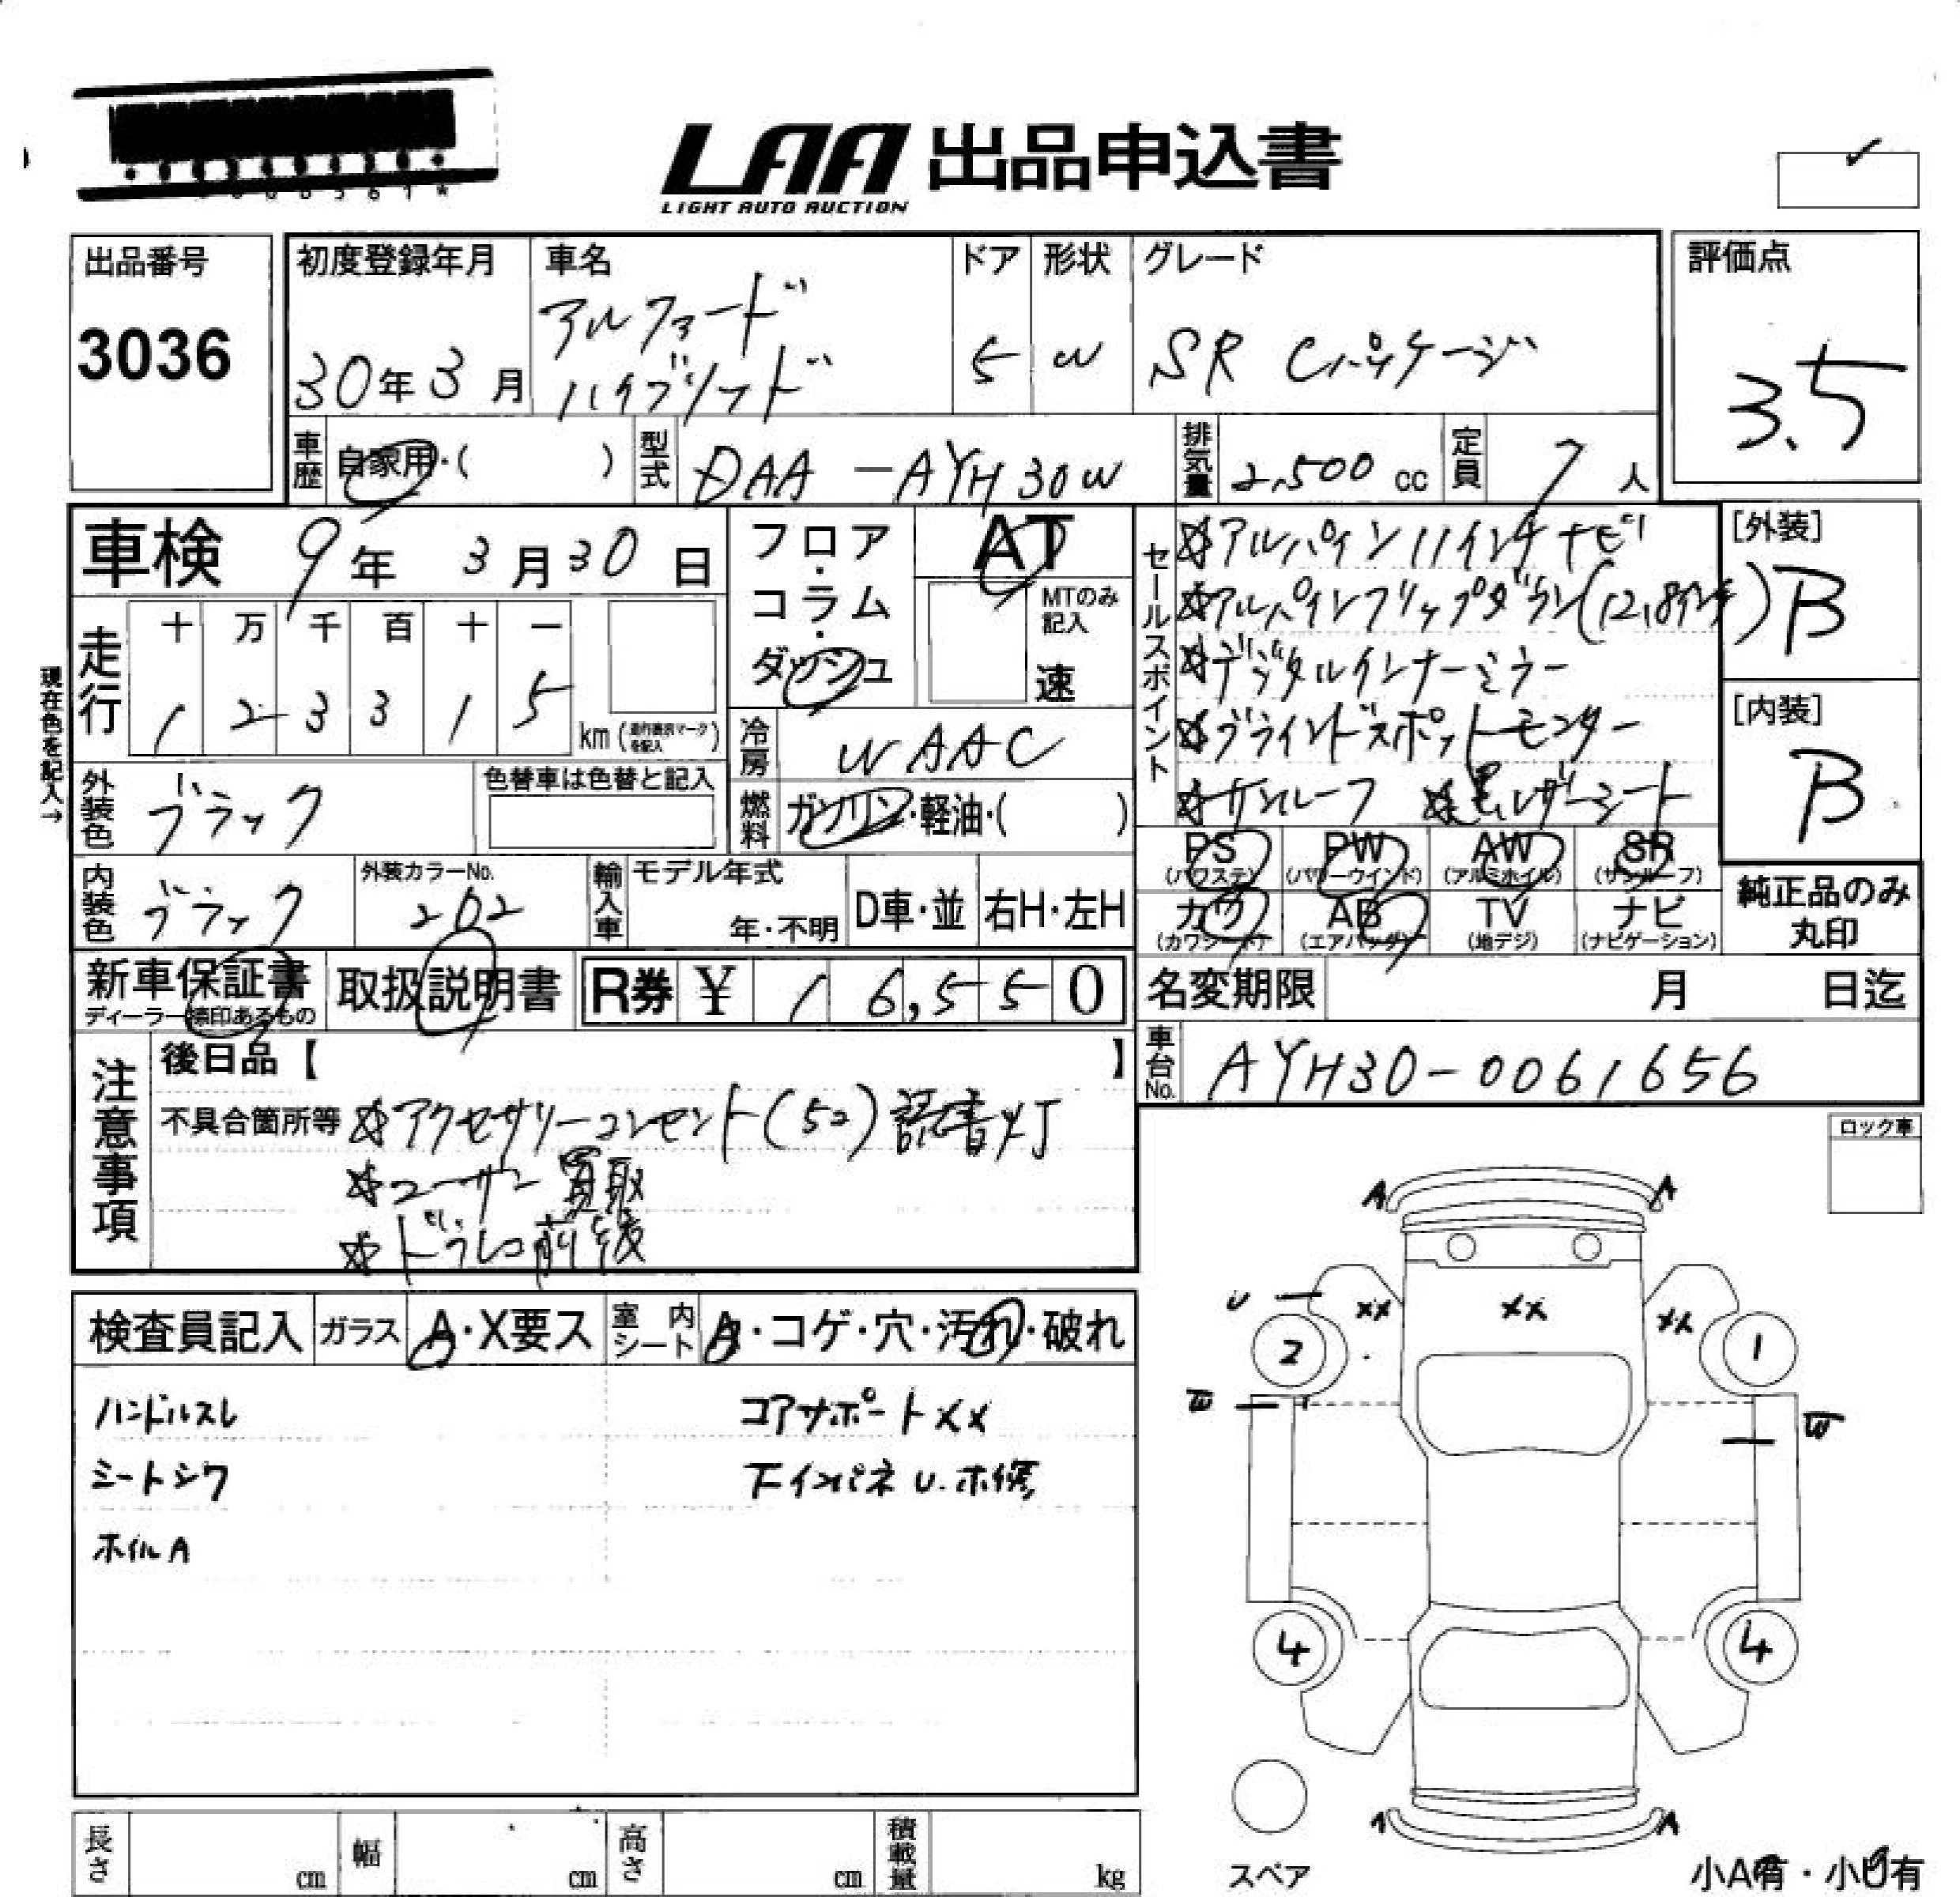 LAA 出品申込書
LIGHT AUTO AUCTION
出品番号
3036
初度登録年月
30年3月
車名
アルファード
ハイブリッド
ドア
5
形状
W
グレード
SR Cパッケージ
評価点
3.5
車歴 自家用・( )
型式 DAA-AYH30W
排気量 2,500 cc
定員 7 人
車検 9年 3月30日
フロア・コラム・ダッシュ
AT
MTのみ記入
速
現在色を記入→
走行
十 万 千 百 十 一
1 2 3 3 1 5 km
冷房 WAAC
燃料 ガソリン・軽油・( )
外装色 ブラック
色替車は色替と記入
内装色 ブラック
外装カラーNo.
202
輸入車 モデル年式
年・不明
D車・並 右H・左H
セールスポイント
☆アルパイン11インチナビ
☆アルパインフリップダウン(12.8インチ)
☆デジタルインナーミラー
☆ブラインドスポットモニター
☆サンルーフ ☆黒レザーシート
[外装]
B
[内装]
B
PS (パワステ) PW (パワーウインド) AW (アルミホイル) SR (サンルーフ)
カワ (カワシート) AB (エアバッグ) TV (地デジ) ナビ (ナビゲーション)
純正品のみ
丸印
新車保証書
ディーラー捺印あるもの
取扱説明書
R券 ¥ 1 6,5 5 0
名変期限 月 日迄
車台No. AYH30-0061656
注意事項
後日品【 】
不具合箇所等 ☆アクセサリーコンセント(52)読書灯
☆ユーザー買取
☆ドラレコ前後
ロック車
検査員記入
ガラス A・X要ス
室内シート A・コゲ・穴・汚れ・破れ
ハンドルスレ
シートシワ
ホイルA
コアサポートXX
下インパネ U.ホ修
A A
U XX XX XX
2 1
W W
4 4
スペア
A
小A有・小U有
長さ cm
幅 cm
高さ cm
積載量 kg